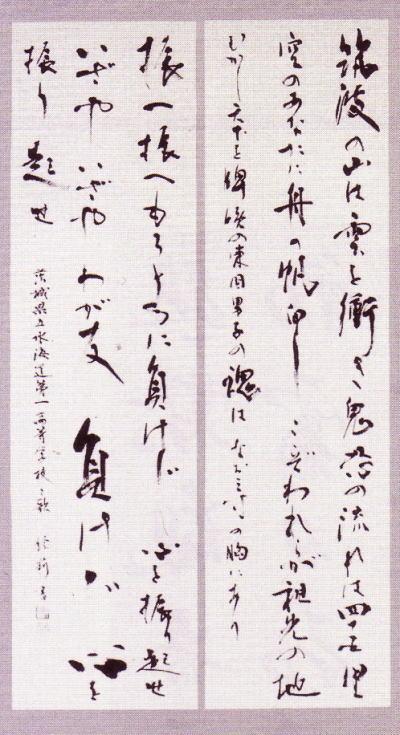 筑波の山は雲を衝き鬼怒の流れは四十五里
空のあなたに舟の帆白しこゞわれらが祖先の地
むかし天下を睥睨の東国男子の魂は
振へ振へもろともに負けじ心を振り起せ
いざやいざやわが友負けじ心を
振り起せ
茨城県立水海道第一高等学校々歌